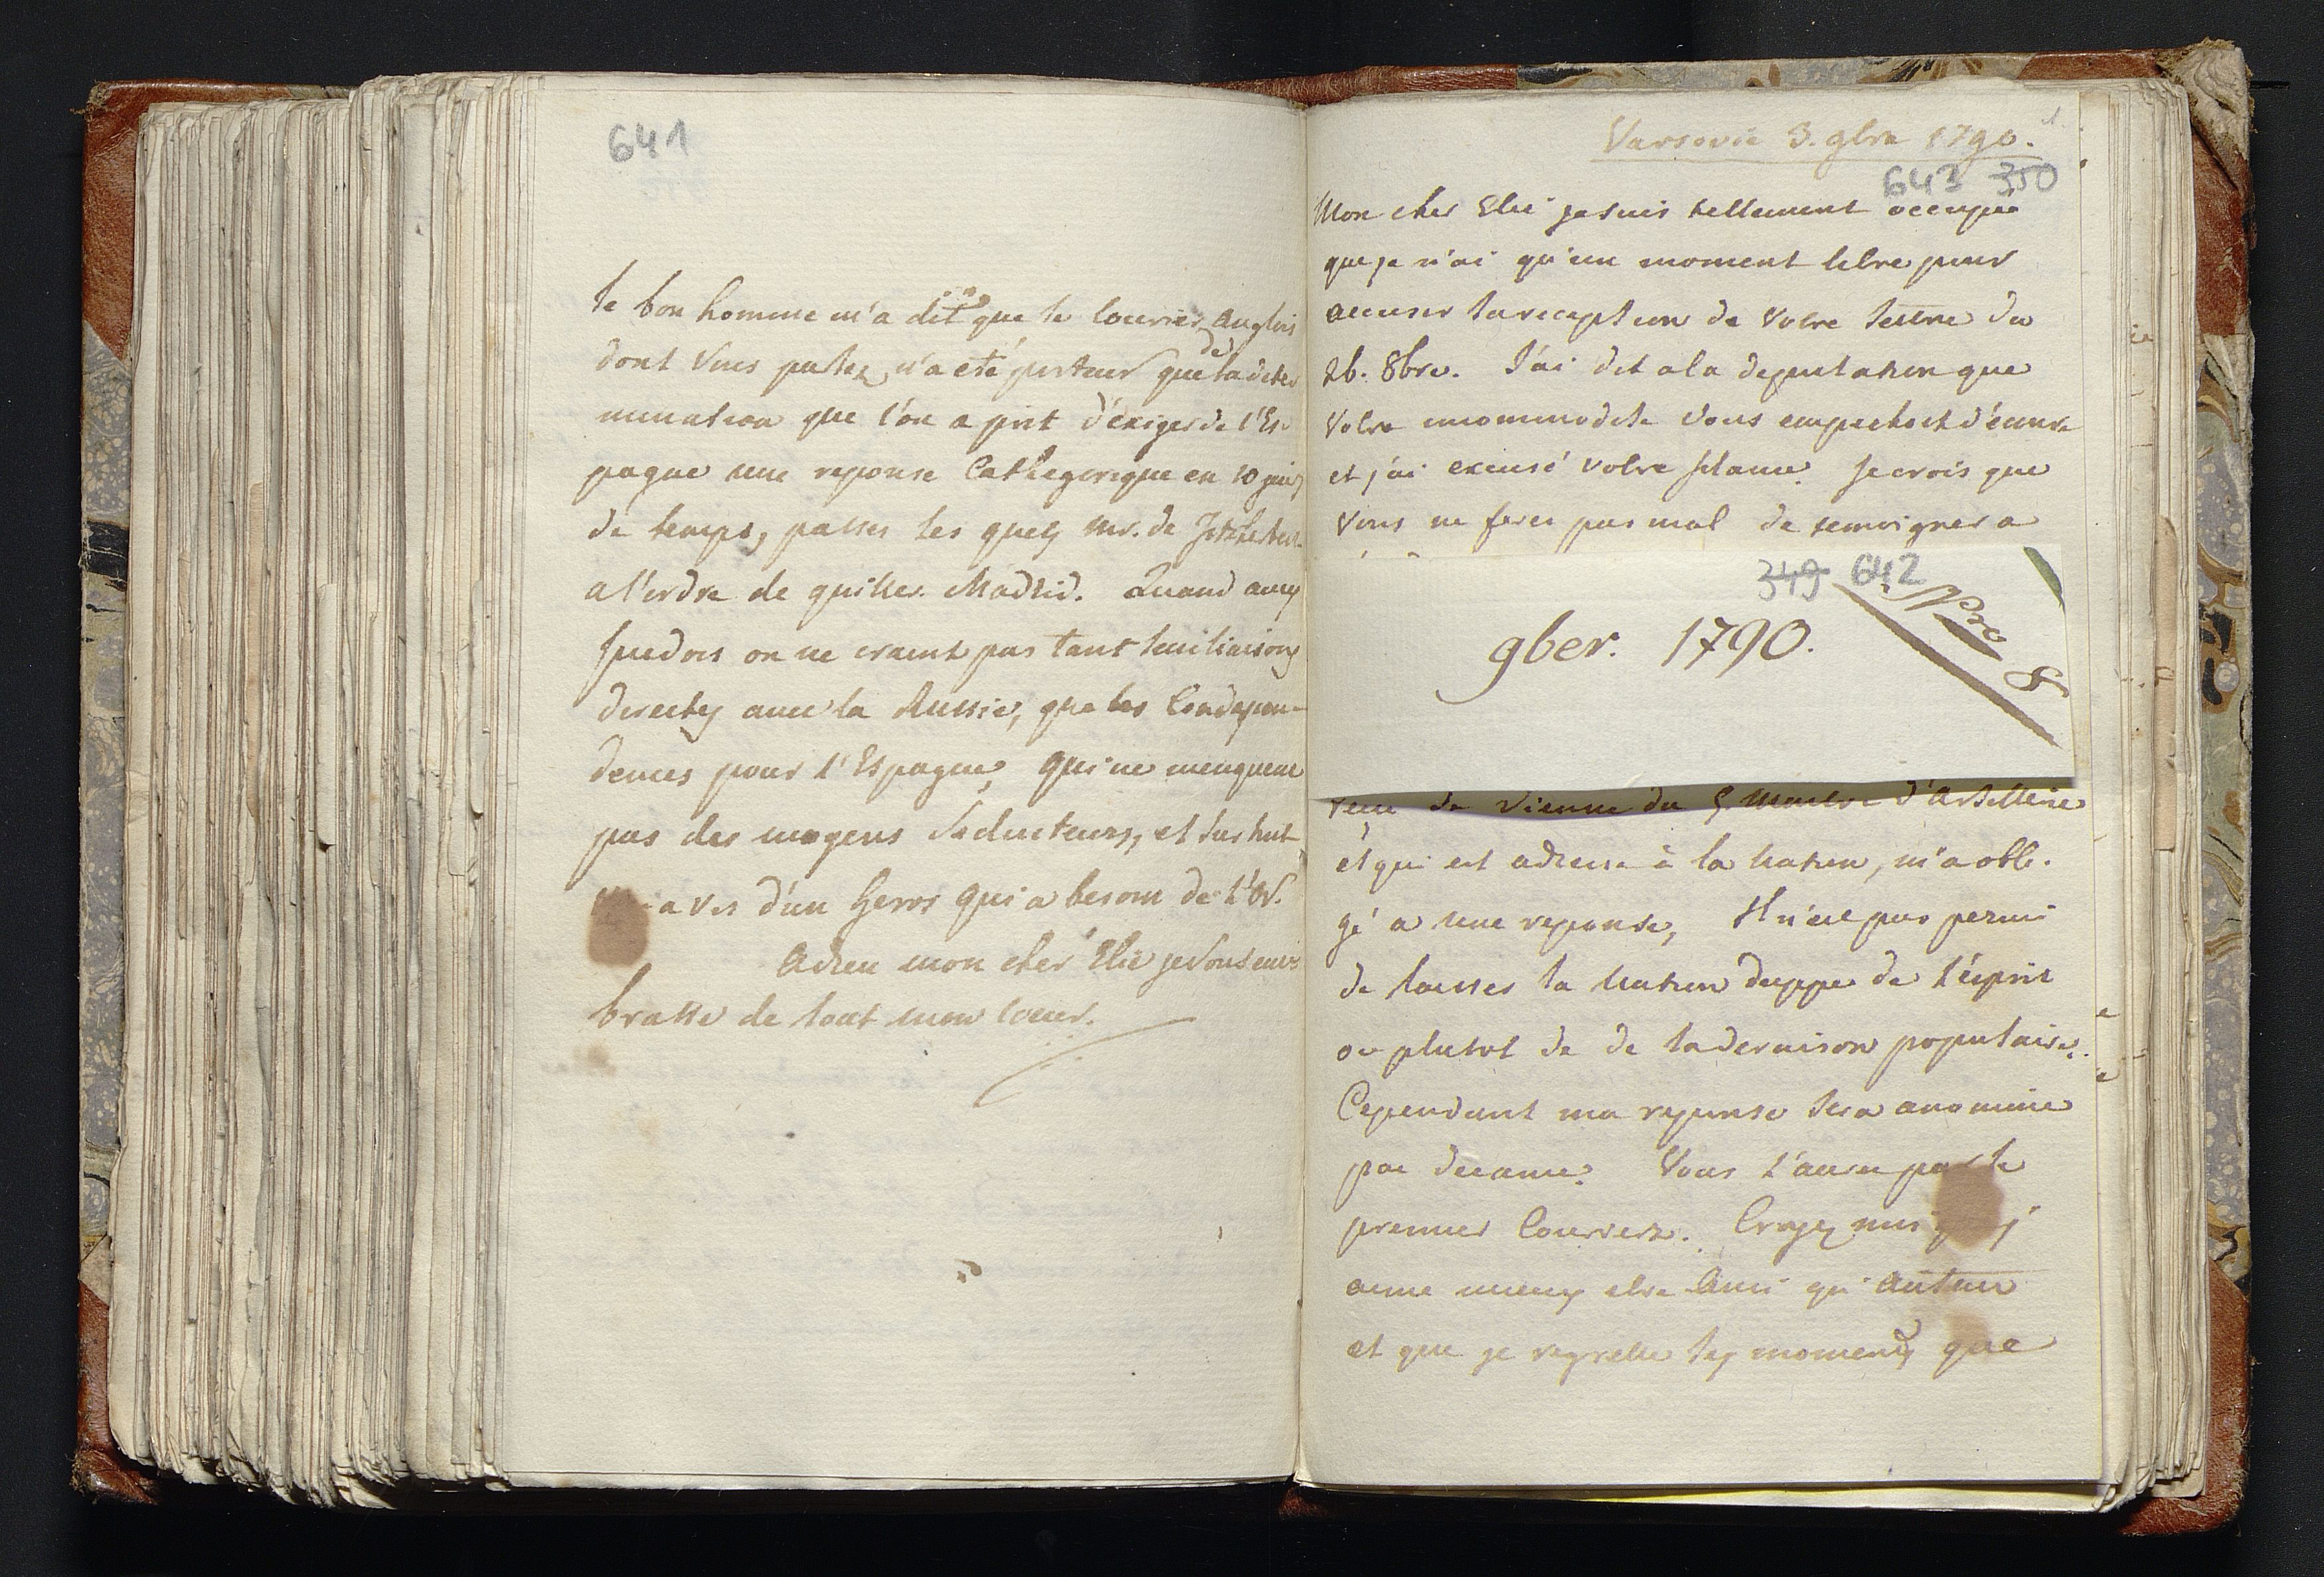 641
le bon homme m'a dit que le Courier Anglois
dont Vous parlez n'a eté porteur que de la deter
mination que l'on a prit d'éxiger de l'Es-
pagne une reponse Cathegorique en 10 jours
de temps, passes les quels Mr. de Fitzherbert
a l'ordre de quitter Madrid. Quand aux
suedois on ne craint pas tant leur liaisons
directes avec la Russie, que les
dences pour l'Espagne, qui ne menquent
pas des moyens Seducteurs, et surtout
a vis d'un heros qui a besoin de l'Or.
Adieu mon cher Elie je Vous em
brasse de tout mon Coeur.
Varsovie 3. 9bre 1790.
643 350
Mon cher Elie je suis tellement occupé
que je n'ai qu'un moment libre pour
accuser la reception de Votre lettre du
26. 8bre. J'ai dit a la deputation que
Votre incommodité Vous empechoit d'écrire
et j'ai excusé Votre silance. Je crois que
Vous ne feres pas mal de temoigner a
349 642
9ber. 1790.
Nro 8
de Vienne du G. Maitre d'Artillerie
et qui est adresse à la Nation, m'a obli-
gé a une reponse, Il n'est pas permi
de laisser la Nation duppe de l'ésprit
ou plutot de de la deraison populaire.
Cependant ma reponse sera anonime
par decance. Vous l'aurez par le
premier Courrier. Croyez moi j
aime mieux etre Ami qu'Auteur
et que je regrette les moments que